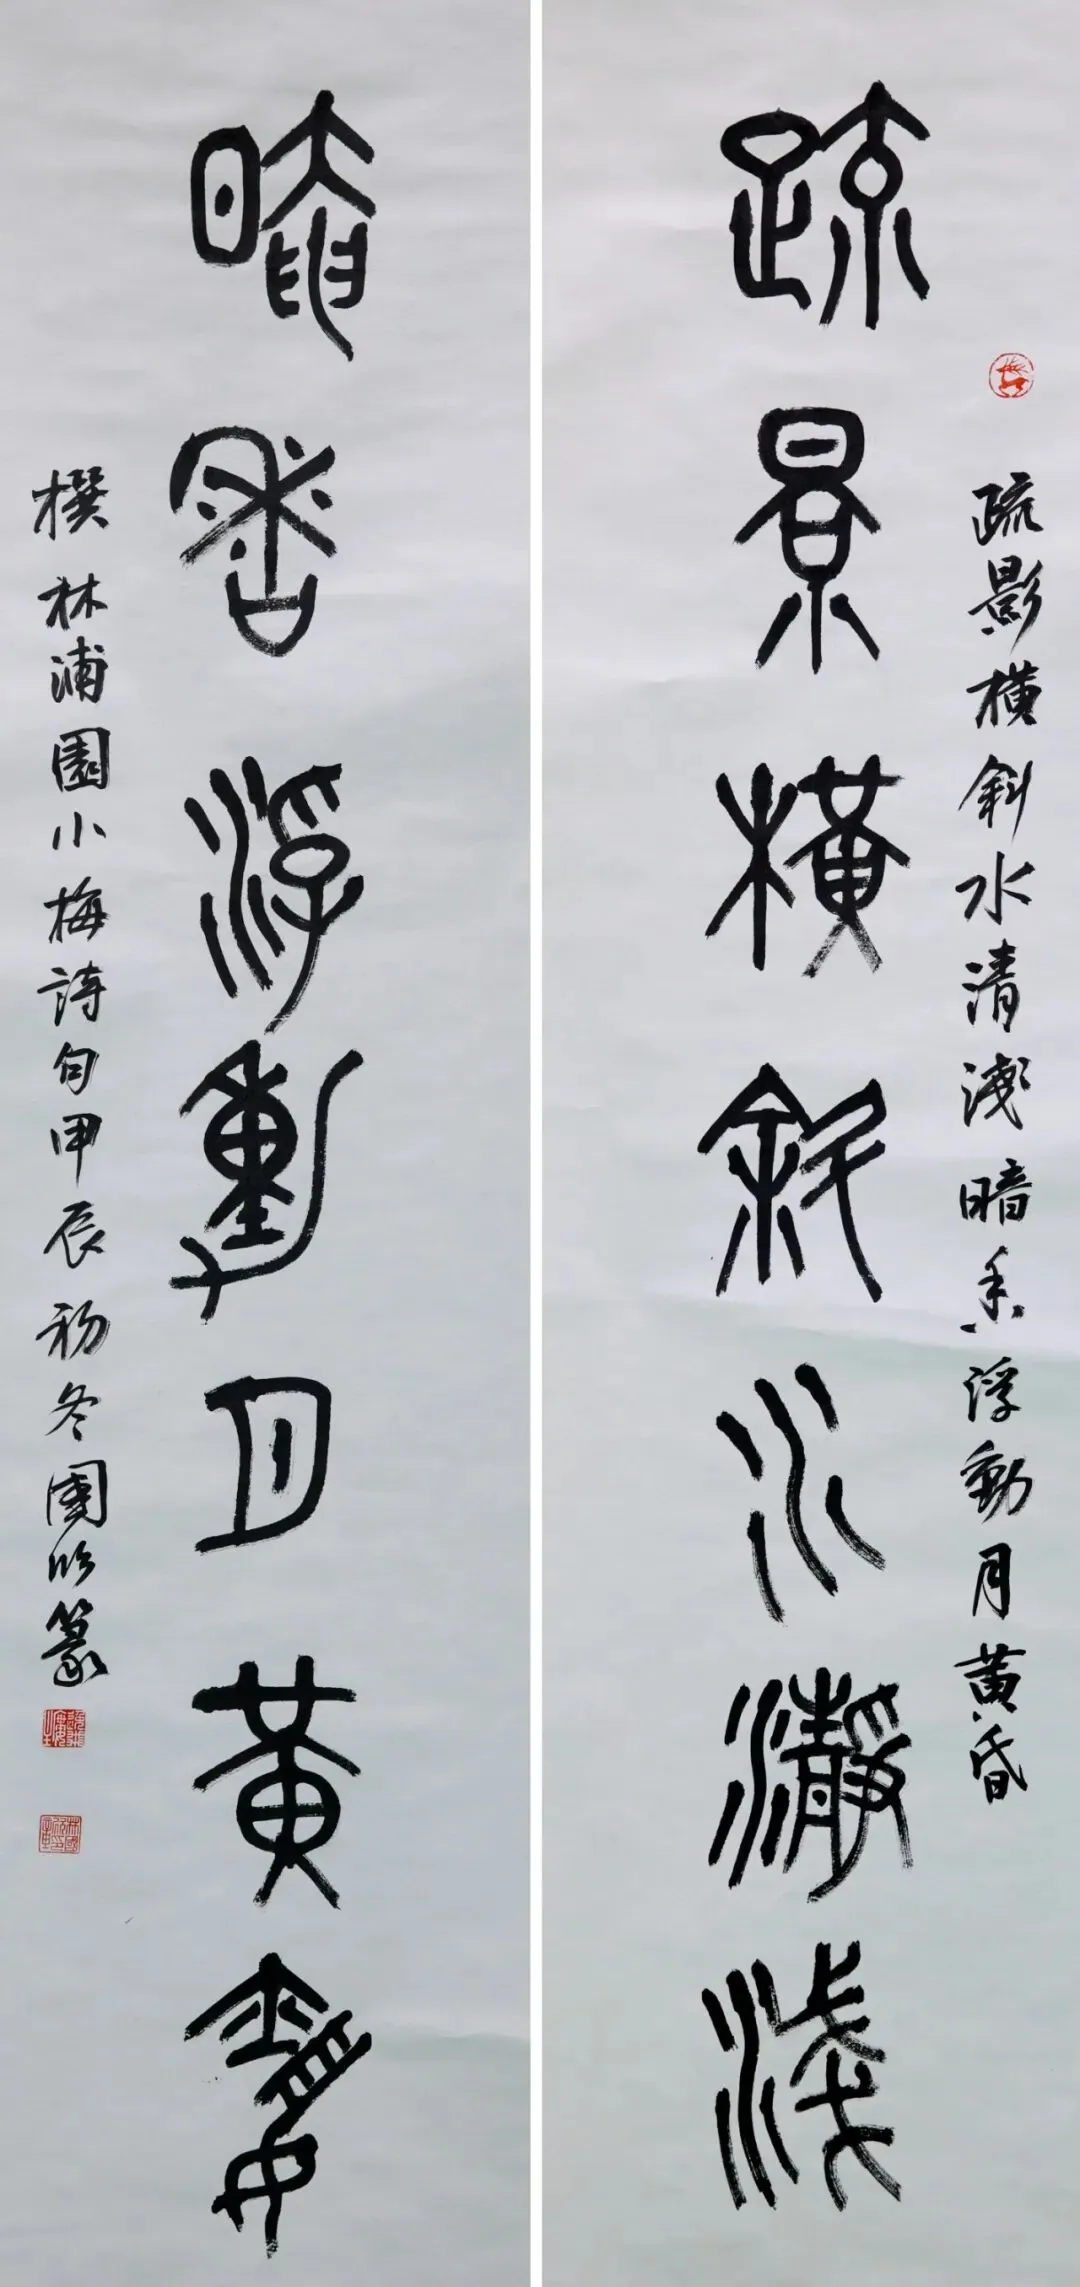 疏景橫斜水瀞淺
疏影橫斜水清淺暗香浮動月黃昏
晻香浮動月黃昏
撰林浦園小梅詩句甲辰初冬國欣篆